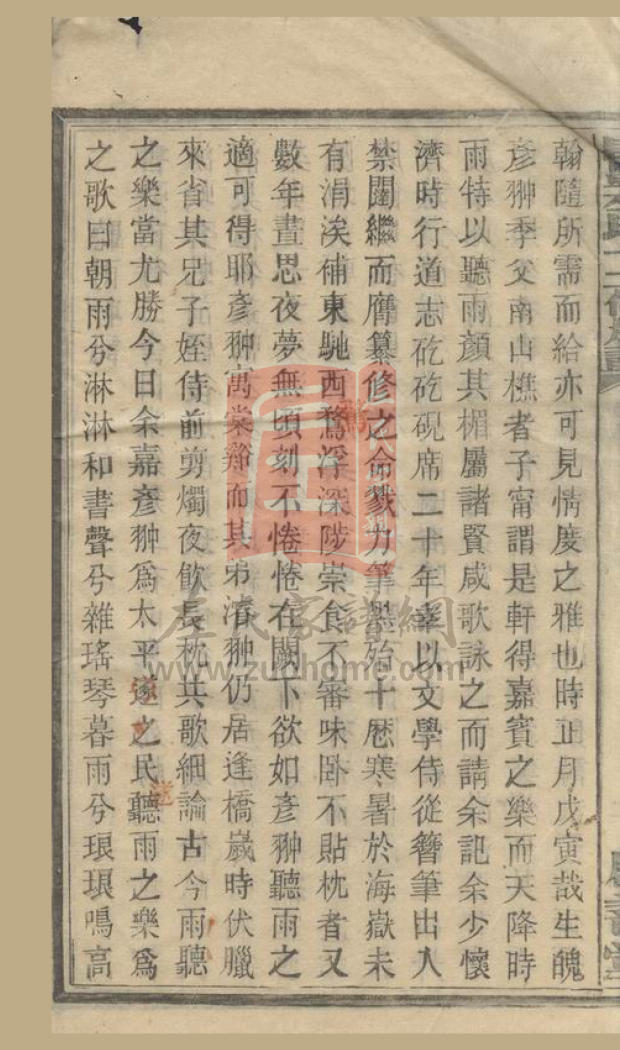 翰隨所需而給亦可見情度之雅也時正月戊寅哉生魄
彥翀季父南山樵者子甯謂是軒得嘉賓之樂而天降時
雨特以聽雨顏其楣屬諸賢咸歌詠之而請余記余少懷
濟時行道志矻矻硯席二十年幸以文學侍從簪筆出入
禁闥繼而膺纂修之命戮力筆墨殆十厯寒暑於海嶽未
有涓涘補東馳西鶩浮深陟崇食不審味卧不貼枕者又
數年晝思夜夢無頃刻不惓惓在闕下欲如彥翀聽雨之
適可得耶彥翀寓棠谿而其弟濬翀仍居逢橋歲時伏臘
來省其兄子姪侍前剪燭夜飲長枕共歌細論古今雨聽
之樂當尤勝今日余嘉彥翀爲太平遂之民聽雨之樂爲
之歌曰朝雨兮淋淋和書聲兮雜瑤琴暮雨兮琅琅鳴高
左氏家譜網
www.zuohome.com